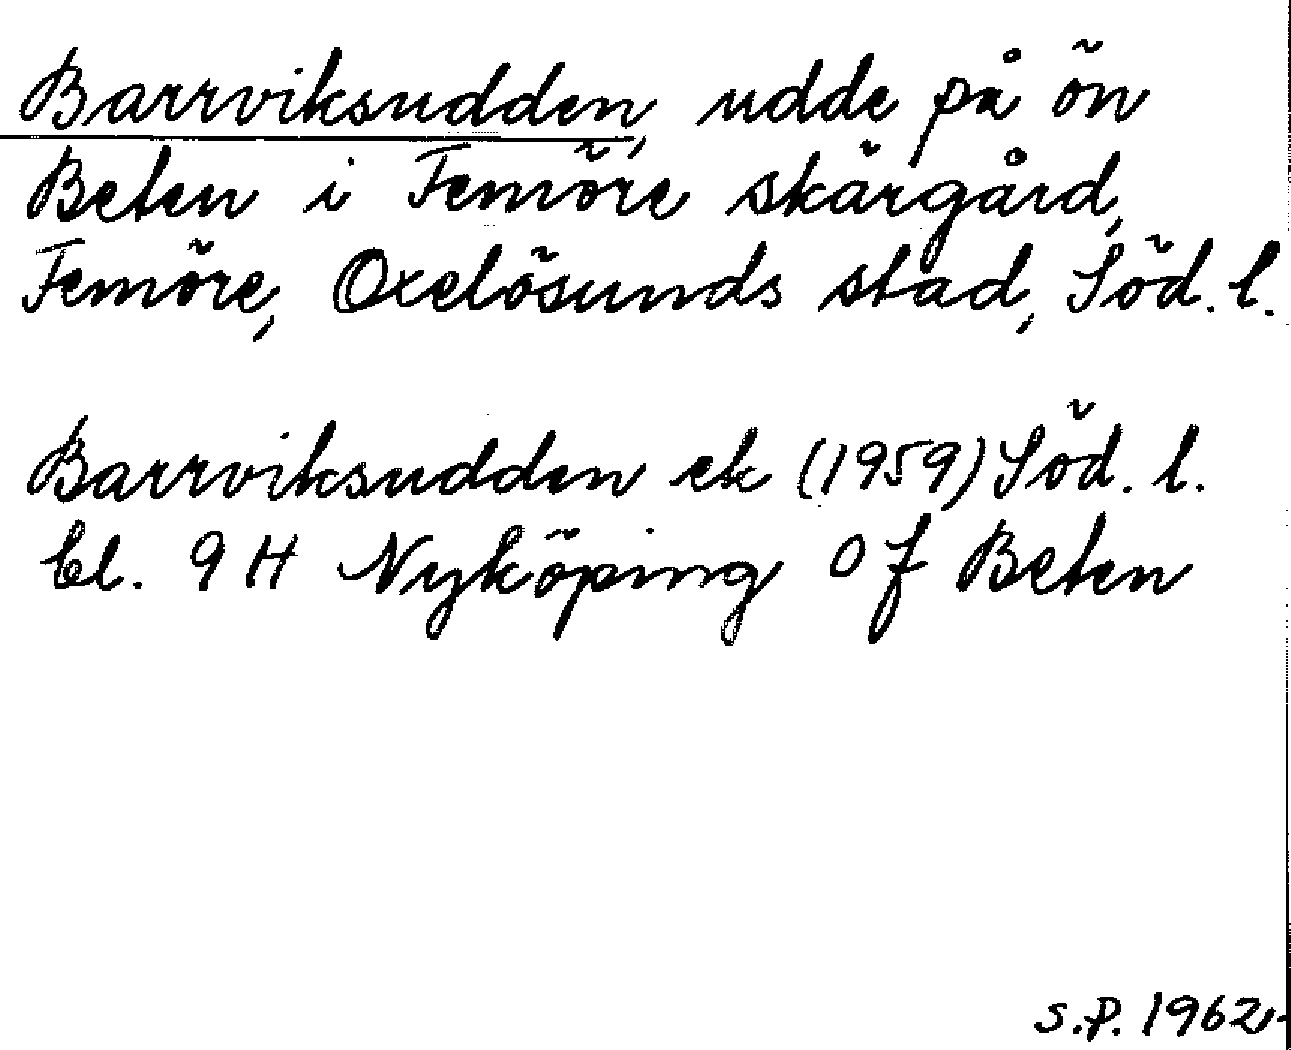 Barrviksudden, udde på ön
Beten i Femöre skärgård,
Femöre, Oxelösunds stad, Söd. l.
Barrviksudden ek (1959) Söd. l.
bl. 9 H Nyköping 0 f Beten
S.P. 1962.